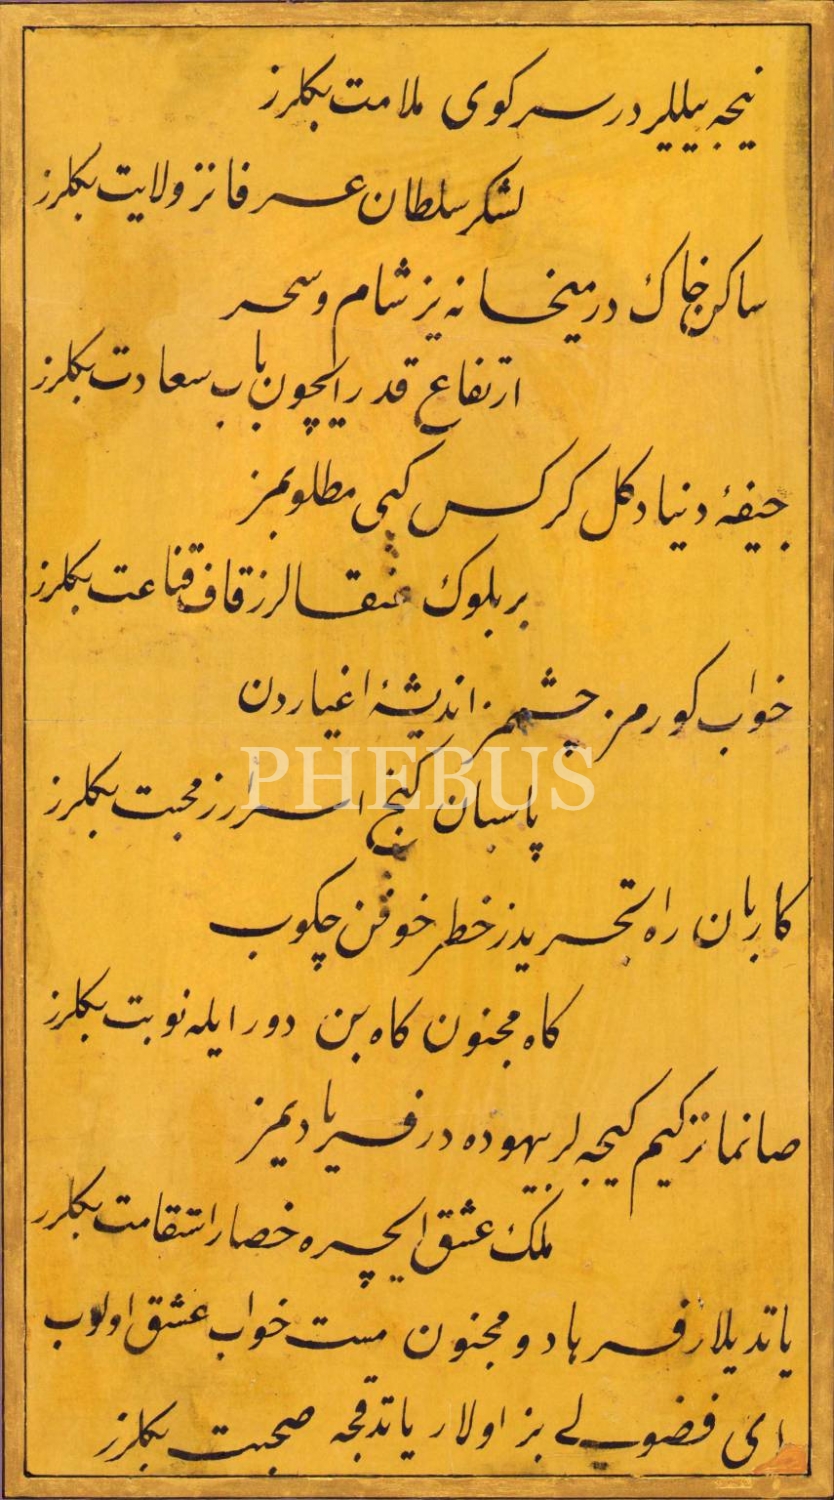 نیجه ییللر در سر کوی ملامت بکلرز
لشکر سلطان عرفانز ولایت بکلرز
ساکن خاک در میخانه یز شام و سحر
ارتفاع قدر ایچون باب سعادت بکلرز
جیفهٔ دنیا دکل کرکس کبی مطلوبمز
بر بلوک عنقالرز قاف قناعت بکلرز
خواب کورمز چشممز اندیشهٔ اغیاردن
پاسبان کنج اسرارز محبت بکلرز
PHEBUS
کاربان راه تجریدز خطر خوفن چکوب
کاه مجنون کاه بن دور ایله نوبت بکلرز
صانمانز کیم کیجه لر بیهوده در فریادیمز
ملک عشق ایچره حصار استقامت بکلرز
یاتدیلار فرهاد و مجنون مست خواب عشق اولوب
ای فضولی بز اولار یاتدقجه صحبت بکلرز